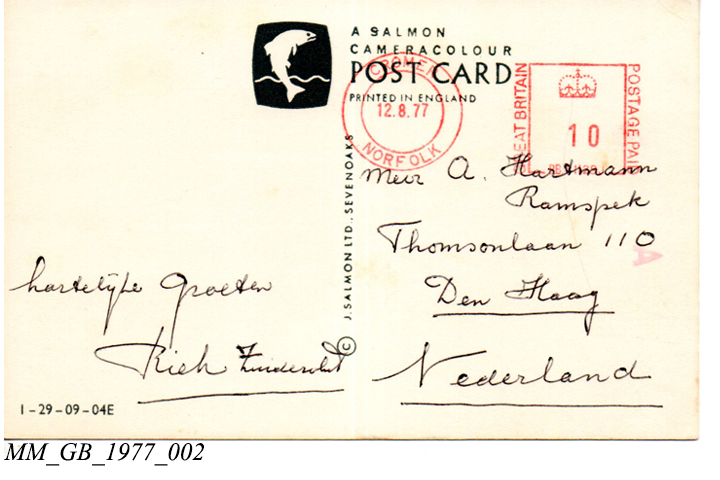 A SALMON
CAMERACOLOUR
POST CARD
PRINTED IN ENGLAND
CROMER
12.8.77
NORFOLK
GREAT BRITAIN
10
POSTAGE PAID
© J. SALMON LTD., SEVENOAKS
A. Hartmann
Ramspek
Thomsonlaan 110
Den Haag
Nederland
hartelijke groeten
Riek
1-29-09-04E
MM_GB_1977_002